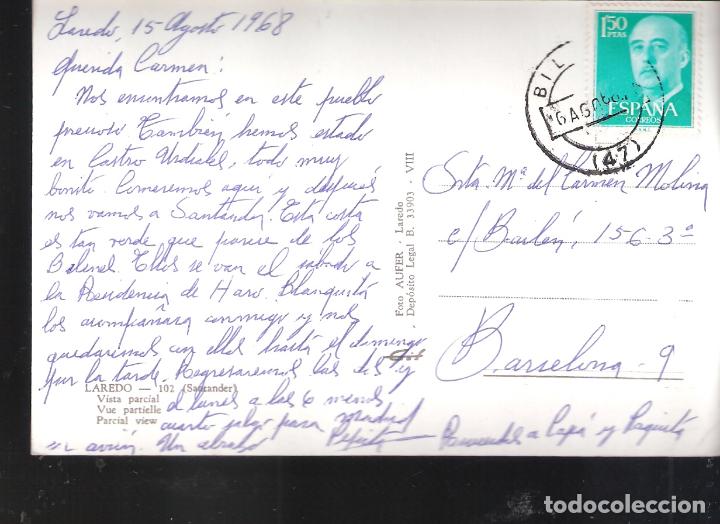 Laredo, 15 Agosto 1968
Querida Carmen:
Nos encontramos en este pueblo
precioso También hemos estado
en Castro Urdiales, todo muy
bonito. Comeremos aquí y después
nos vamos a Santander. Esta costa
es tan verde que parece de los
Ellos se van el sabado a
la Residencia de Haro. Blanquita
los acompañara conmigo y nos
quedaremos con ellos hasta el domingo
por la tarde. Regresaremos las dos y
el lunes a las 6 menos
cuarto salgo para Madrid
en avión. Un abrazo Pepita
Recuerdos a Papá y Paquita
LAREDO — 102 (Santander)
Vista parcial
Vue partielle
Parcial view
Foto AUFER - Laredo
Depósito Legal B. 33903 - VIII
1'50
PTAS
ESPAÑA
CORREOS
BIL
6 AGO 68
(47)
Srta. Mª del Carmen Molina
c/ Bailén, 156-3º
Barcelona-9
todocoleccion.net